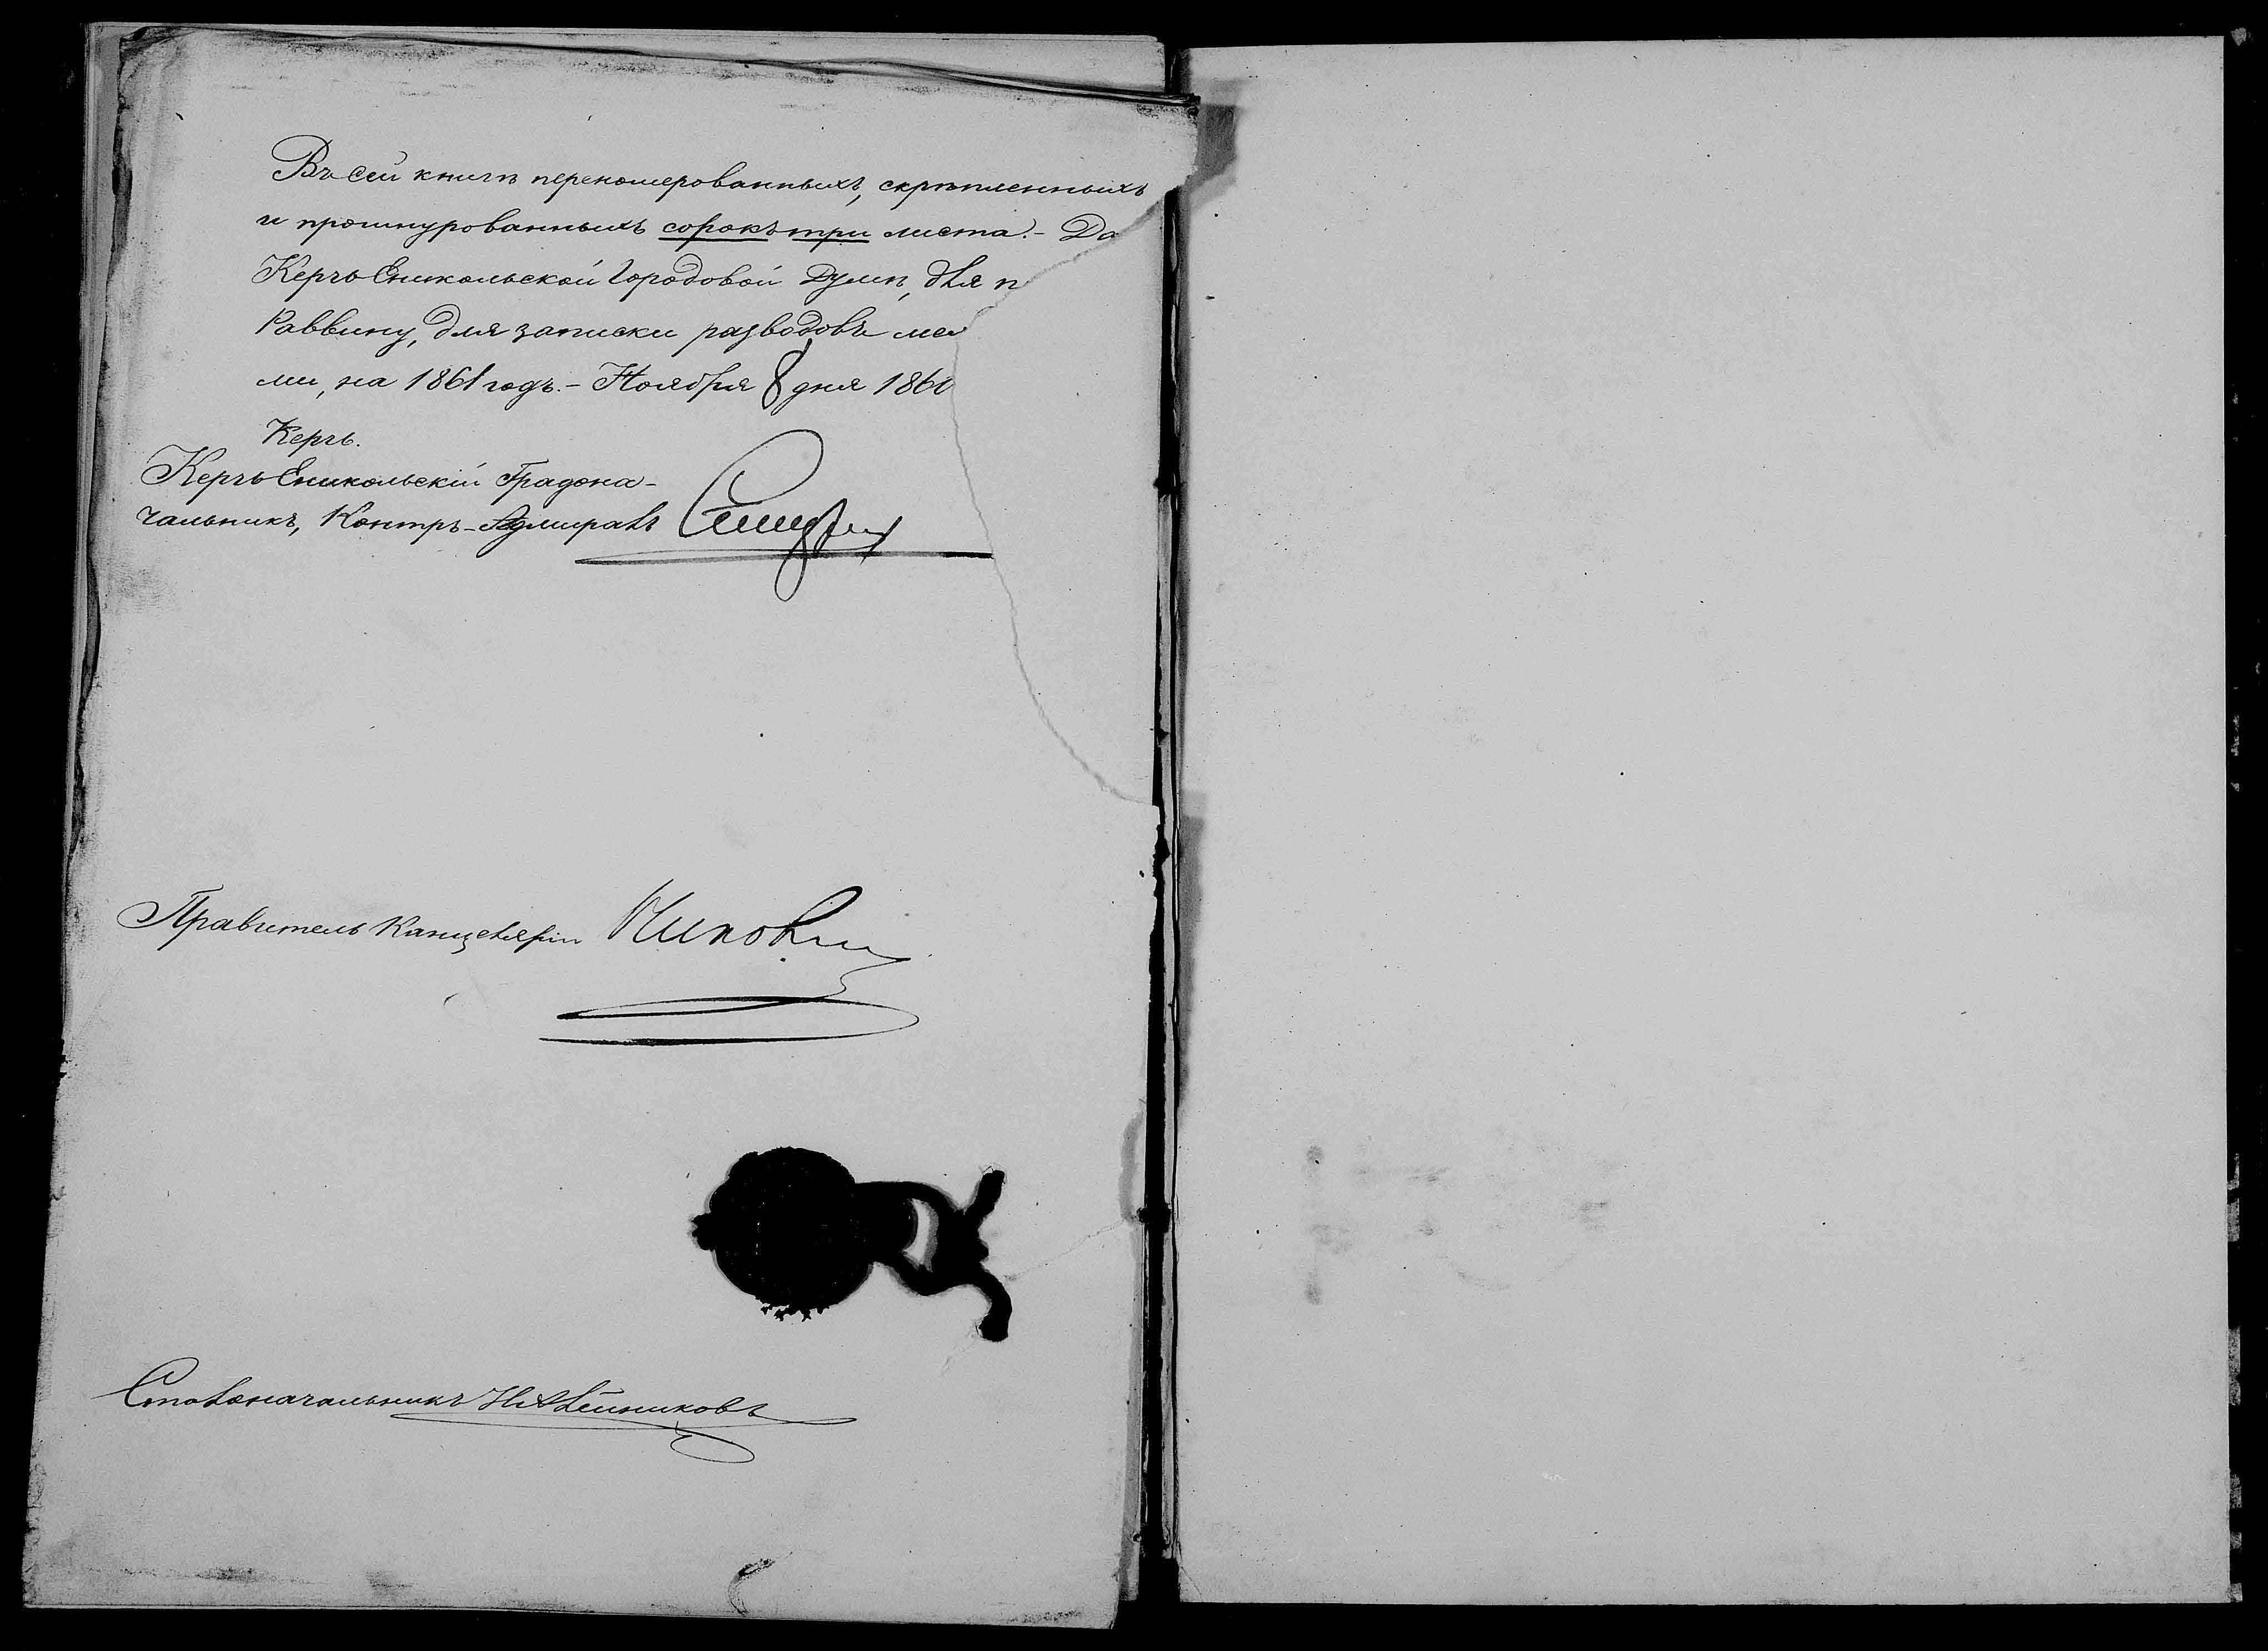 Въ сей книгѣ перенумерованныхъ, скрѣпленныхъ
и прошнурованныхъ сорокъ три листа. – Да
Керчь Еникольской Городовой Думѣ, для п
Раввину, для записки разводовъ ме
ми, на 1861 годъ. – Ноября 8 дня 1860
Керчь.
Керчь Еникольскій Градона-
чальникъ, Контръ-Адмиралъ
Правитель Канцеляріи
Столоначальникъ